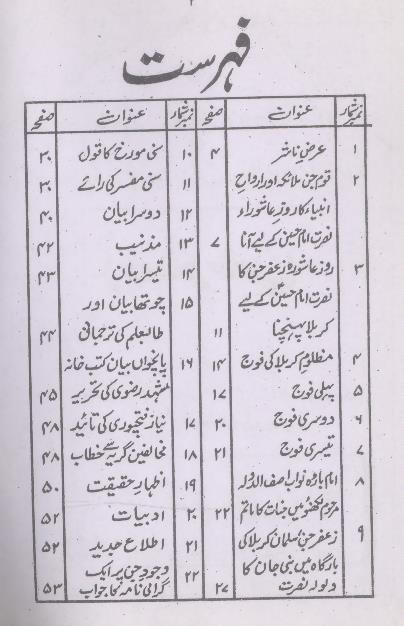 ۲
فہرست
نمبر شمار عنوان صفحہ
۱ عرض ناشر ۴
۲ قوم جن ملائکہ اور ارواح
انبیاء کا روز عاشوراء
نصرت امام حسینؑ کے لیے آنا ۷
۳ روز عاشورہ زعفر جن کا
نصرت امام حسینؑ کے لیے
کربلا پہنچنا ۱۱
۴ مظلوم کربلا کی فوج ۱۴
۵ پہلی فوج ۱۷
۶ دوسری فوج ۲۰
۷ تیسری فوج ۲۱
۸ امام باڑہ نواب آصف الدولہ
مرحوم لکھنؤ میں جنات کا ماتم ۲۲
۹ زعفر جن سلمان کربلا کی
بارگاہ میں بنی جان کا
ولولہ نصرت ۲۷
نمبر شمار عنوان صفحہ
۱۰ سنی مورخ کا قول ۳۰
۱۱ سنی مفسر کی رائے ۳۰
۱۲ دوسرا بیان ۴۰
۱۳ مذنیب ۴۲
۱۴ تیسرا بیان ۴۳
۱۵ چوتھا بیان اور
طالبعلم کی ترجمانی ۴۴
۱۶ پانچواں بیان کتب خانہ
مشہد رضوی کی تحریر ۴۵
۱۷ نیاز فتحپوری کی تائید ۴۸
۱۸ مخالفین گریہ سے خطاب ۴۸
۱۹ اظہار حقیقت ۵۰
۲۰ ادبیات ۵۲
۲۱ اطلاع جدید ۵۲
۲۲ وجود جن پر ایک
گرامی نامہ کا جواب ۵۳